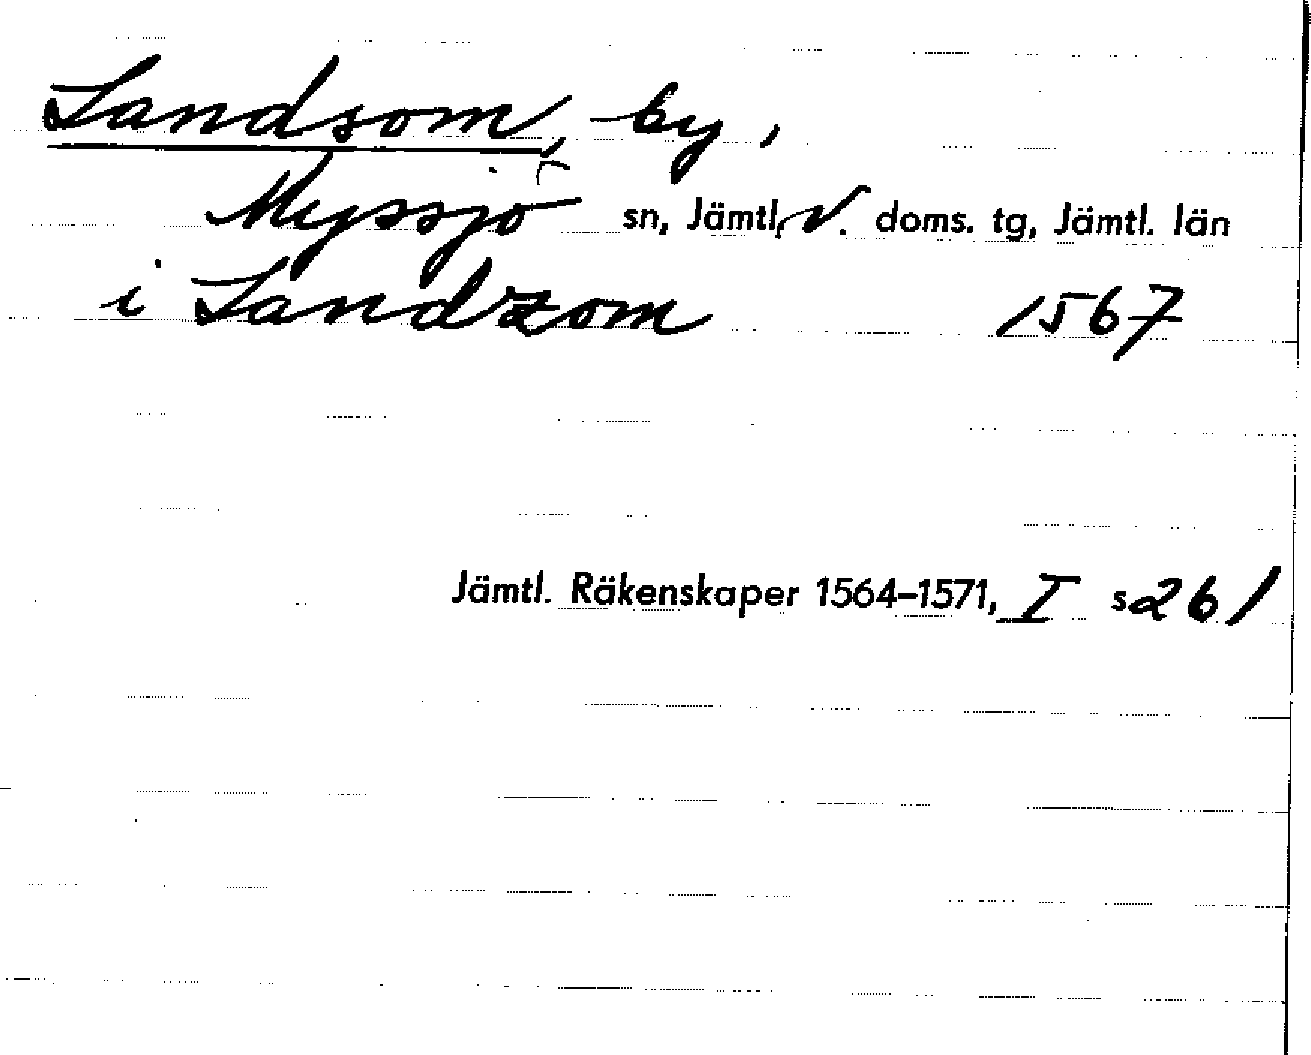 Landsom, by,
Myssjö sn, Jämtl, V. doms. tg, Jämtl. län
i Landzom 1567
Jämtl. Räkenskaper 1564–1571, I s 261